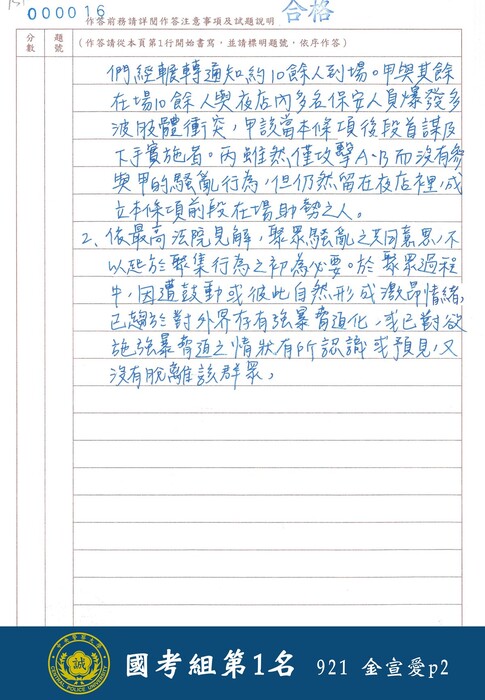 000016
合格
作答前務請詳閱作答注意事項及試題說明
分數
題號
(作答請從本頁第1行開始書寫，並請標明題號，依序作答)
們經輾轉通知約10餘人到場。甲與其餘
在場10餘人與夜店內多名保安人員爆發多
波肢體衝突，甲該當本條項後段首謀及
下手實施者。丙雖然僅攻擊A、B而沒有參
與甲的騷亂行為，但仍然留在夜店裡，成
立本條項前段在場助勢之人。
2、依最高法院見解，聚眾騷亂之共同意思，不
以起於聚集行為之初為必要。於聚眾過程
中，因遭鼓動或彼此自然形成激昂情緒，
已趨於對外界存有強暴脅迫化，或已對欲
施強暴脅迫之情狀有所認識或預見，又
沒有脫離該群眾，
誠
CENTRAL POLICE UNIVERSITY
國考組第1名 921 金宣愛p2